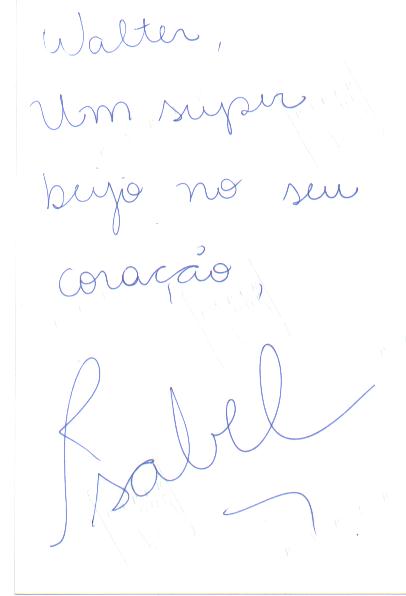 Walter,
Um super
beijo no seu
coração,
Isabel